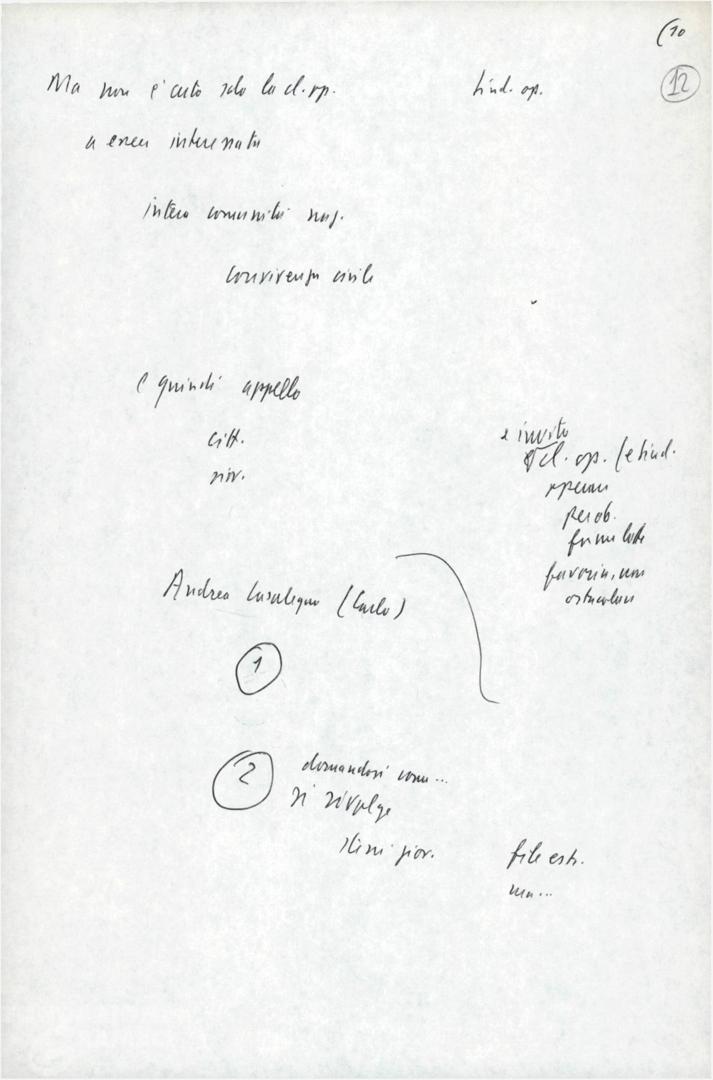 (10
12
Ma non è certo solo la cl. op.
sind. op.
a essere interessata
intera comunità naz.
convivenza civile
e quindi appello
citt.
giov.
e invito
cl. op. (e sind.
operai
formulate
favorire, non
ostacolare
Andrea Casalegno (Carlo)
1
2
domandosi come...
si rivolge
stessi giov.
file estr.
ma...